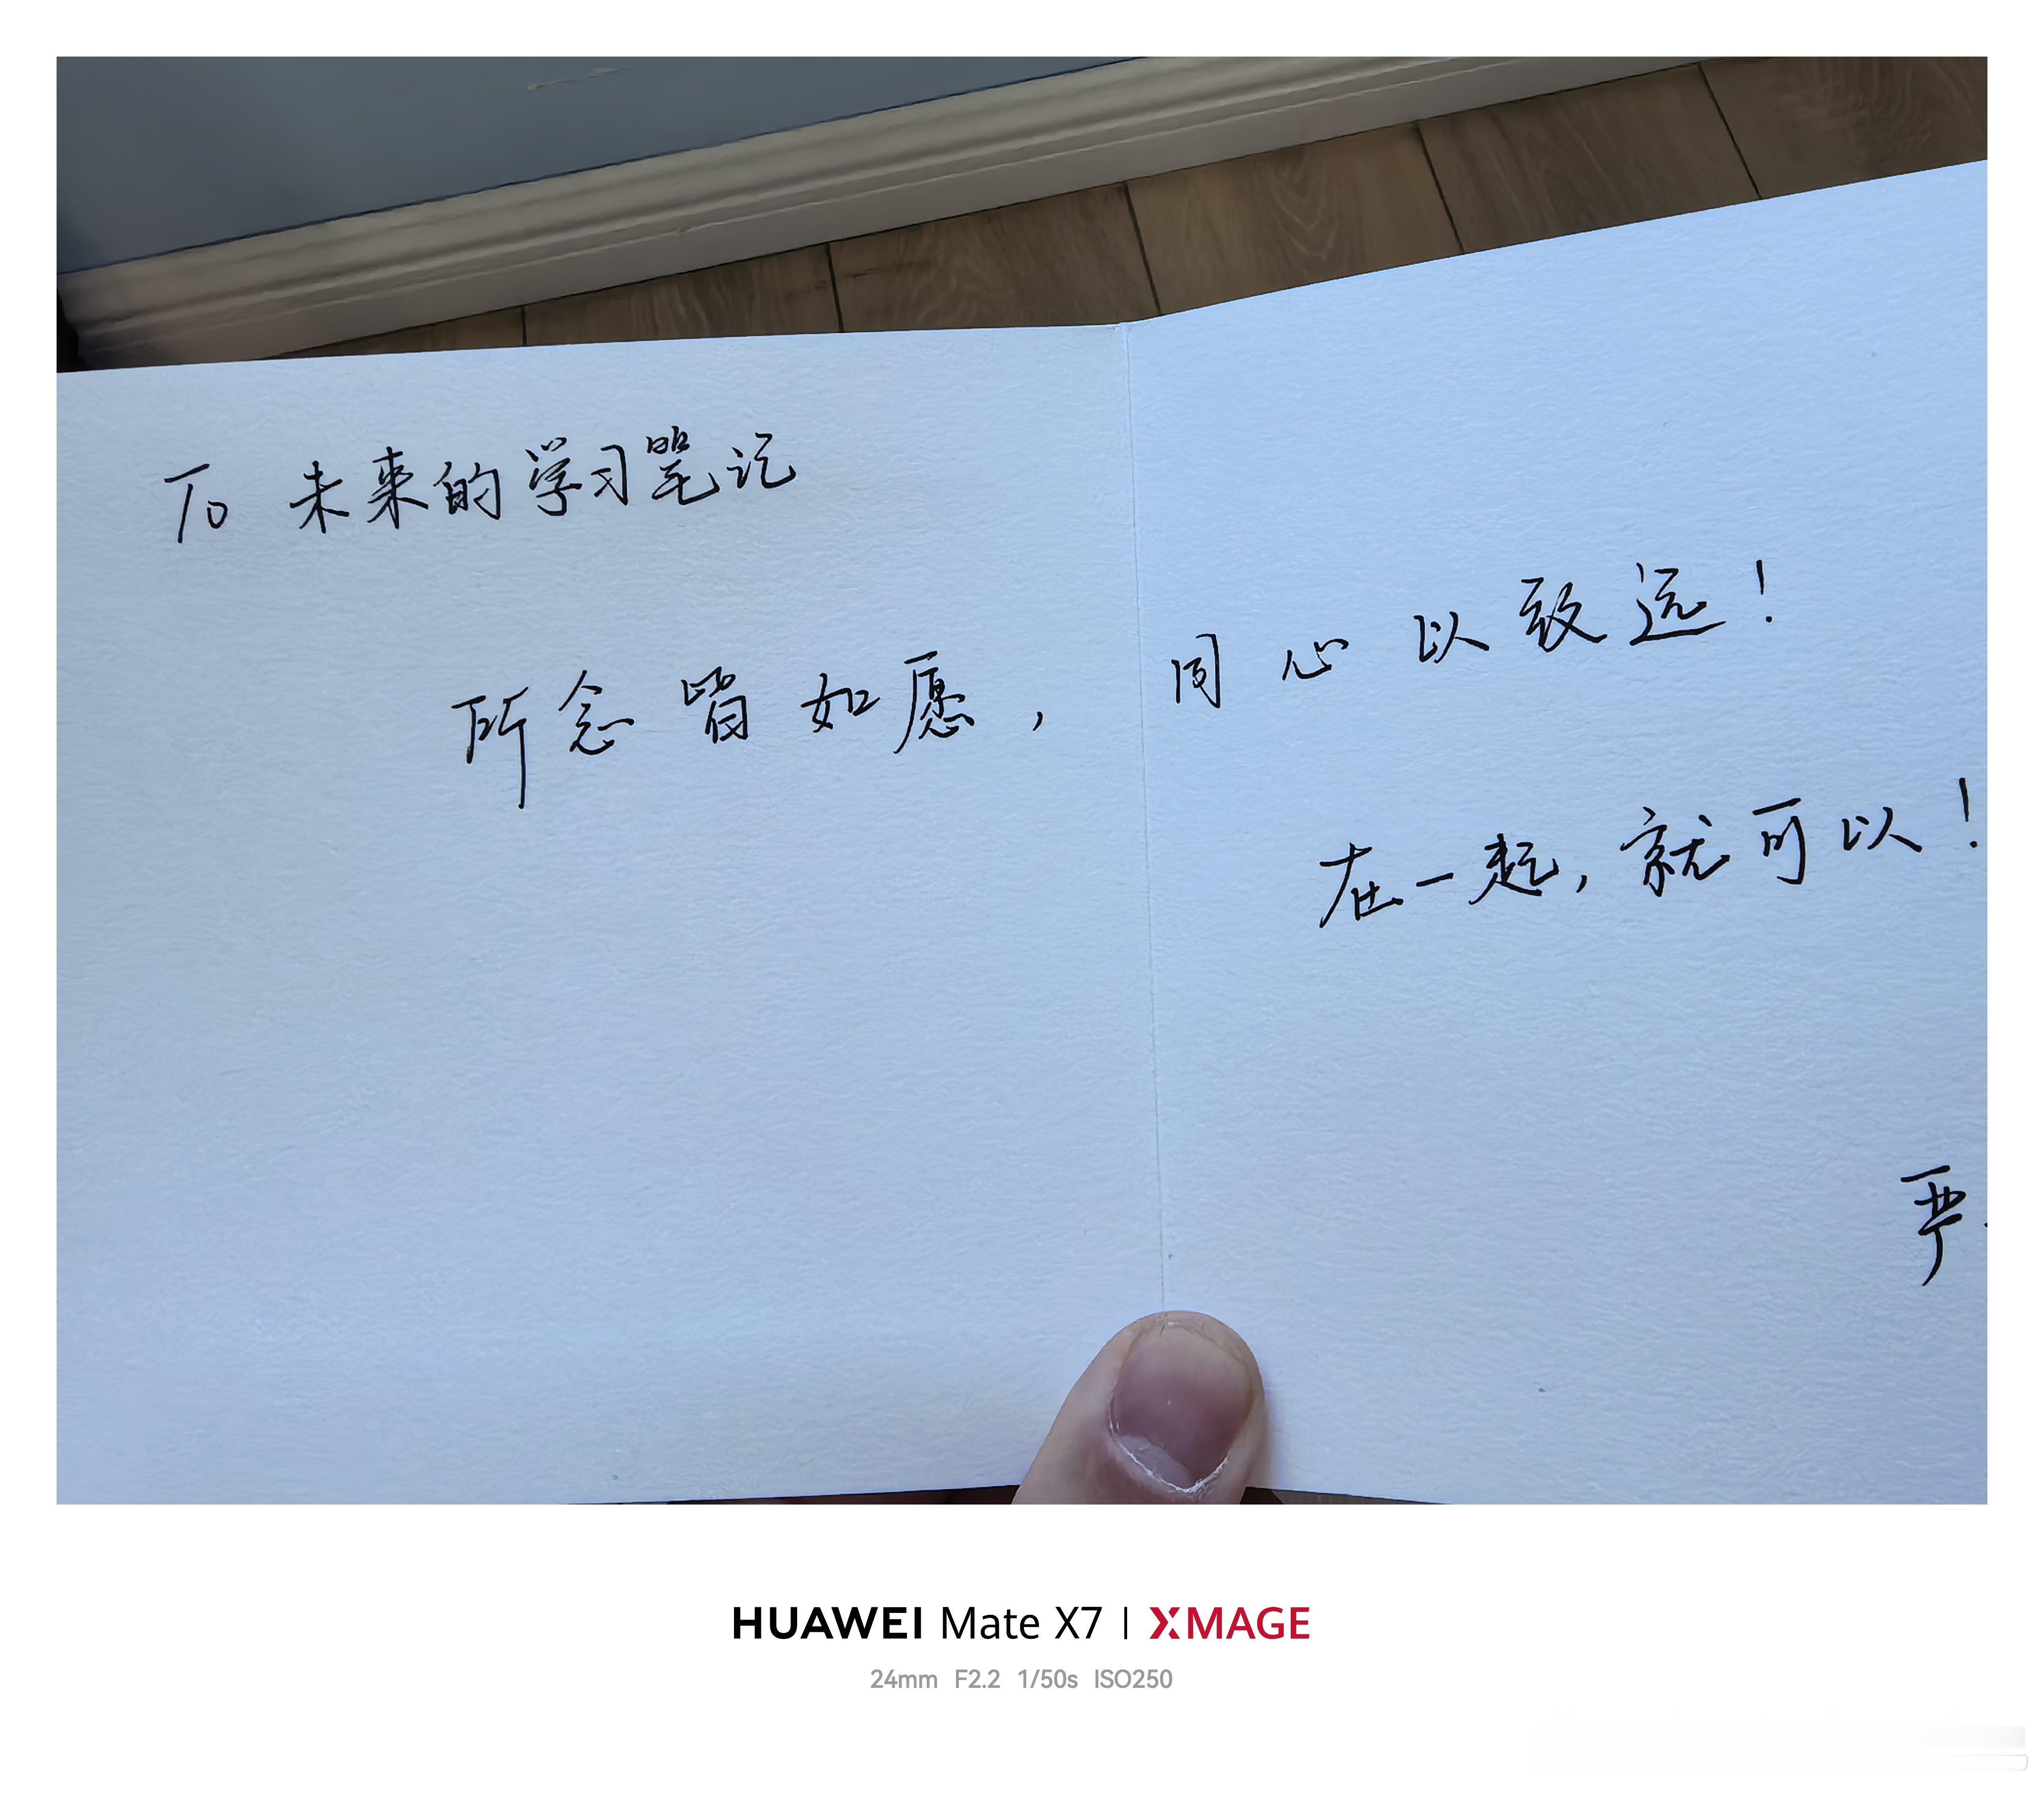 To 未来的学习笔记
所念皆如愿，同心以致远！
在一起，就可以！
严
HUAWEI Mate X7 | XMAGE
24mm F2.2 1/50s ISO250